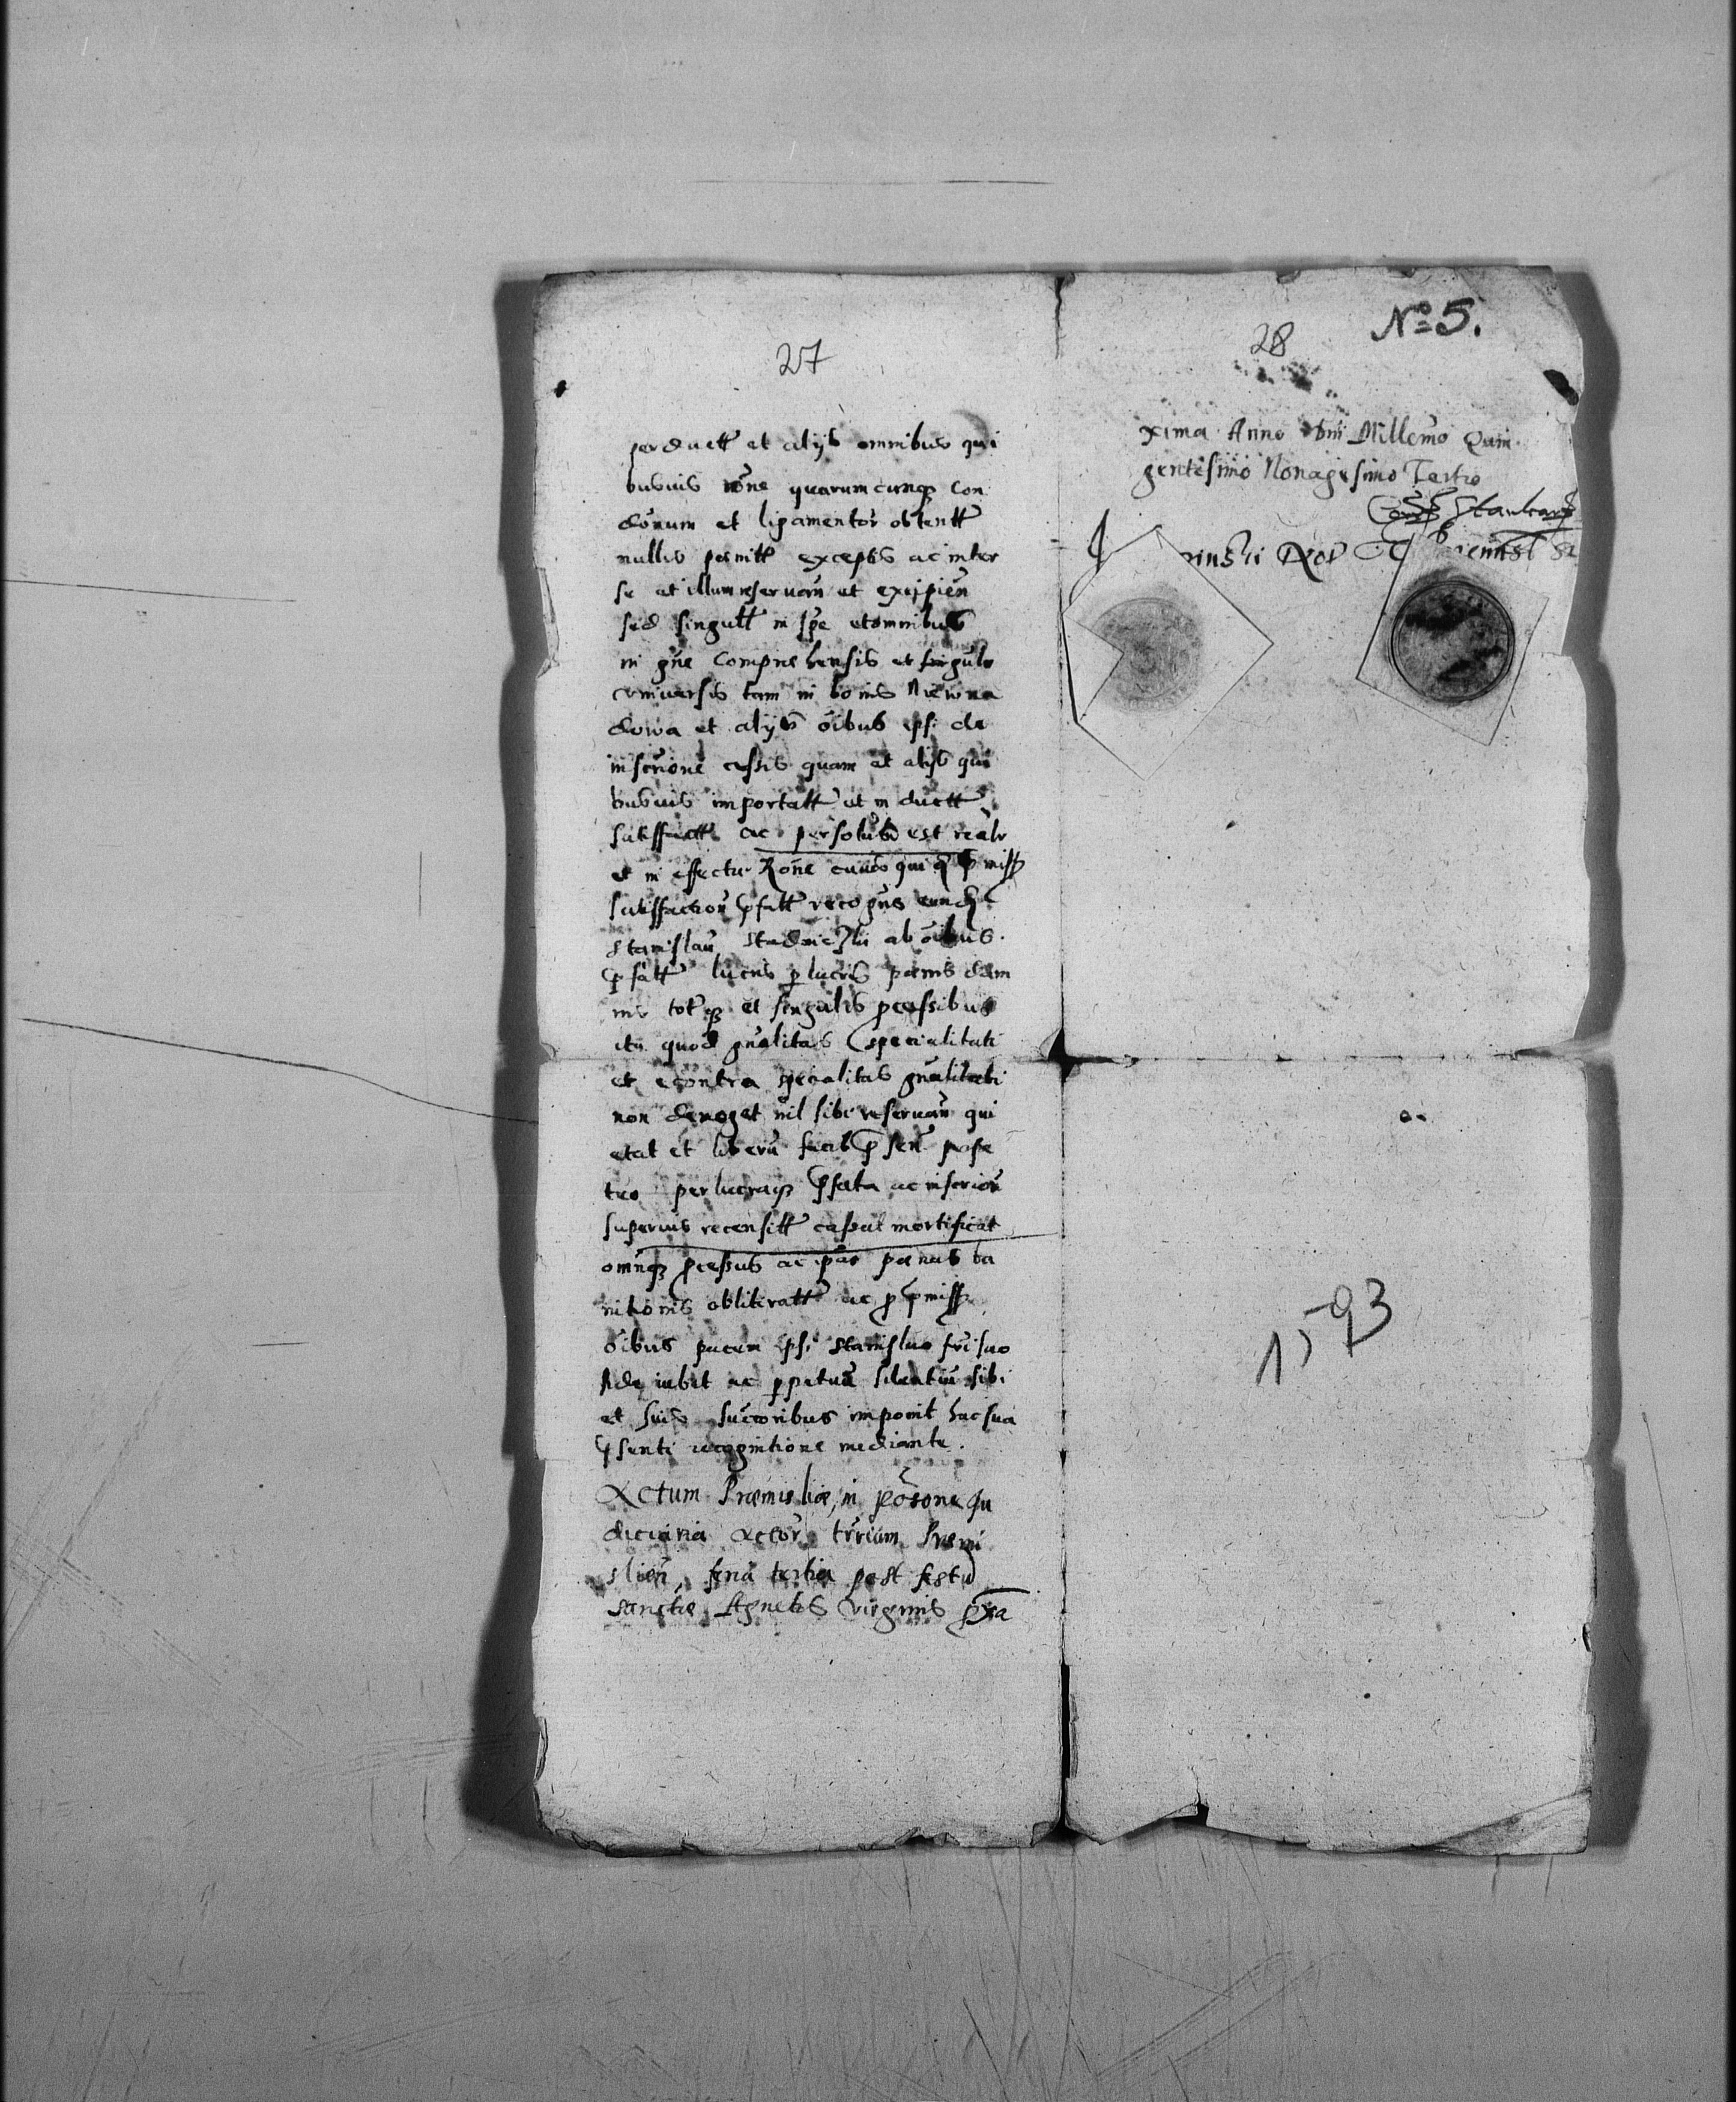 27
perductt et alijs omnibus qui
busuis rõne quarumcunqz con
dõnum et ligamentor obtentt
nullis penitt exceptis ac inter
se et illum reseruan et excipien
sed singull in spe et omnibus
in gne comprehensis et singulr
vniuersis tam in bonis
et alijs õibus ipsi de
inscrione cessis quam et alijs qui
busuis importatt et in ductt
satisfactt ac persolut est realr
et in effectu Rõne cuius qui
satisfaction pfatt recogns eund
Stanislau Stadniczki ab õibus
pfatt lucris p lucris poenis dam
nis totqz et singulis pcessibus
ita quod gnalitas specialitati
et econtra specialitas gnalitati
non deroget nil sibi reseruan qui
etat et liberu facit p sen
perlucraqz pfata ac inscrion
superius recensitt cassat mortificat
omnqz pcessus ac poenas ba
nitionis obliteratt ac p pmiss
õibus pacem ipsi Stanislao fri suo
fide iubet ac ppetuu silentiu sibi
et suis succoribus imponit hac sua
psenti recognitione mediante.
Actum Præmisliæ, in Ju
diciaria Actor trrium Præmi
slien, feria tertia post festu
sanctæ Agnetis virginis pxa
28
No 5.
xima Anno Dni Millemo Quin
gentesimo Nonagesimo Tertio
1593